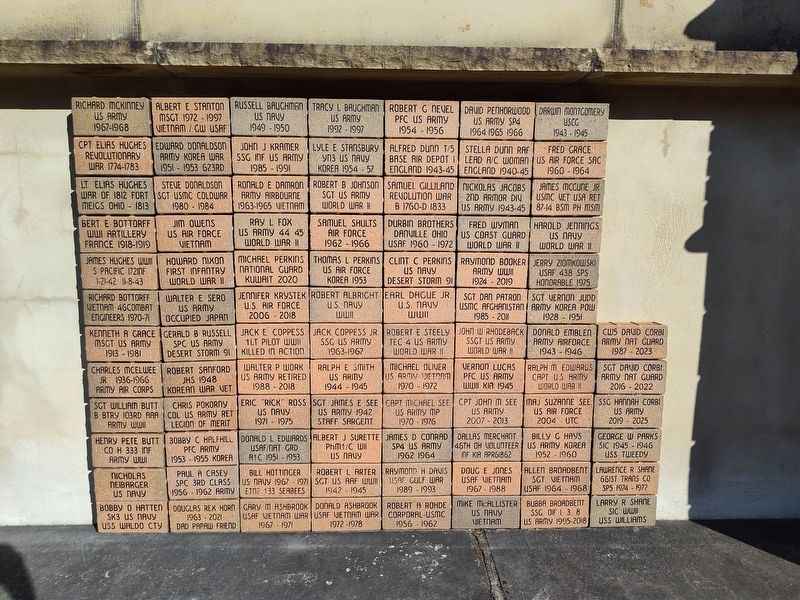 RICHARD MCKINNEY
US ARMY
1967-1968
ALBERT E STANTON
MSGT 1972 - 1997
VIETNAM / GW USAF
RUSSELL BAUGHMAN
US NAVY
1949 - 1950
TRACY L BAUGHMAN
US ARMY
1992 - 1997
ROBERT G NEVEL
PFC US ARMY
1954 - 1956
DAVID PENHORWOOD
US ARMY SP4
1964 1965 1966
DARWIN MONTGOMERY
USCG
1943 - 1945
CPT ELIAS HUGHES
REVOLUTIONARY
WAR 1774-1783
EDWARD DONALDSON
ARMY KOREA WAR
1951 - 1953 623RD
JOHN J KRAMER
SSG INF US ARMY
1985 - 1991
LYLE E STANSBURY
YN3 US NAVY
KOREA 1954 - 57
ALFRED DUNN T/5
BASE AIR DEPOT 1
ENGLAND 1943-45
STELLA DUNN RAF
LEAD A/C WOMAN
ENGLAND 1940-45
FRED GRACE
US AIR FORCE SAC
1960 - 1964
LT ELIAS HUGHES
WAR OF 1812 FORT
MEIGS OHIO - 1813
STEVE DONALDSON
SGT USMC COLDWAR
1980 - 1984
RONALD E DAMRON
ARMY AIRBOURNE
1963-1965 VIETNAM
ROBERT B JOHNSON
SGT US ARMY
WORLD WAR II
SAMUEL GILLILAND
REVOLUTION WAR
B 1760-D 1833
NICKOLAS JACOBS
2ND ARMOR DIV
US ARMY 1943-45
JAMES MCCUNE JR
USMC VET USA RET
87-14 BSM PH MSM
BERT E BOTTORFF
WWI ARTILLERY
FRANCE 1918-1919
JIM OWENS
US AIR FORCE
VIETNAM
RAY L FOX
US ARMY 44 45
WORLD WAR II
SAMUEL SHULTS
AIR FORCE
1962 - 1966
DURBIN BROTHERS
DANVILLE OHIO
USAF 1960 - 1972
FRED WYMAN
US COAST GUARD
WORLD WAR II
HAROLD JENNINGS
US NAVY
WORLD WAR II
JAMES HUGHES WWII
S PACIFIC 172INF
1-21-42 11-8-43
HOWARD NIXON
FIRST INFANTRY
WORLD WAR II
MICHAEL PERKINS
NATIONAL GUARD
KUWAIT 2020
THOMAS L PERKINS
US AIR FORCE
KOREA 1953
CLINT C PERKINS
US NAVY
DESERT STORM 91
RAYMOND BOOKER
ARMY WWII
1924 - 2019
JERRY ZIOMKOWSKI
USAF 43B SPS
HONORABLE 1975
RICHARD BOTTORFF
VIETNAM 46COMBAT
ENGINEERS 1970-71
WALTER E SERO
US ARMY
OCCUPIED JAPAN
JENNIFER KRYSTEK
U.S. AIR FORCE
2006 - 2018
ROBERT ALBRIGHT
U.S. NAVY
WWII
EARL DAGUE JR.
U.S. NAVY
WWII
SGT DAN PATRON
USMC AFGHANISTAN
1985 - 2011
SGT VERNON JUDD
ARMY KOREA POW
1928 - 1951
KENNETH A GRACE
MSGT US ARMY
1913 - 1981
GERALD B RUSSELL
SPC US ARMY
DESERT STORM 91
JACK E COPPESS
1LT PILOT WWII
KILLED IN ACTION
JACK COPPESS JR
SSG US ARMY
1963-1967
ROBERT E STEELY
TEC 4 US ARMY
WORLD WAR II
JOHN W RHODEBACK
SSGT US ARMY
WORLD WAR II
DONALD EMBLEN
ARMY AIRFORCE
1943 - 1946
CW5 DAVID CORBI
ARMY NAT GUARD
1987 - 2023
CHARLES MCELWEE
JR 1936-1966
ARMY AIR CORPS
ROBERT SANFORD
JHS 1948
KOREAN WAR VET
WALTER P WORK
US ARMY RETIRED
1988 - 2018
RALPH E SMITH
US ARMY
1944 - 1945
MICHAEL OLIVER
US ARMY VIETNAM
1970 - 1972
VERNON LUCAS
PFC US ARMY
WWII KIA 1945
RALPH M. EDWARDS
CAPT U.S. ARMY
WORLD WAR II
SGT DAVID CORBI
ARMY NAT GUARD
2016 - 2022
SGT WILLIAM BUTT
B BTRY 103RD AAA
ARMY WWII
CHRIS POKORNY
COL US ARMY RET
LEGION OF MERIT
ERIC "RICK" ROSS
US NAVY
1971 - 1975
SGT JAMES E SEE
US ARMY 1942
STAFF SARGENT
CAPT MICHAEL SEE
US ARMY MP
1970 - 1976
CPT JOHN M SEE
US ARMY
2007 - 2013
MAJ SUZANNE SEE
US ARMY
2004 - UTC
SSG HANNAH CORBI
US ARMY
2019 - 2025
HENRY PETE BUTT
CO H 333 INF
ARMY WWII
BOBBY C HALFHILL
PFC ARMY
1953 - 1955 KOREA
DONALD L EDWARDS
USAF/NAT GRD
A1C 1951 - 1953
ALBERT J SURETTE
PHM1/C WII
US NAVY
JAMES D CONRAD
SP4 US ARMY
1962 1964
DALLAS MERCHANT
46TH OH VOLUNTEER
INF KIA APR61862
BILLY G HAYS
US ARMY KOREA
1952 - 1960
GEORGE W PARKS
S1C 1945 - 1946
USS TWEEDY
NICHOLAS
NEIBARGER
US NAVY
PAUL A CASEY
SPC 3RD CLASS
1956 - 1962 ARMY
BILL HOTTINGER
US NAVY 1967 - 1971
ETN2 133 SEABEES
ROBERT L ARTER
SGT US AAF WWII
1942 - 1945
RAYMOND H DAVIS
USAF GULF WAR
1989 - 1993
DOUG E JONES
USAF VIETNAM
1967 - 1988
ALLEN BROADBENT
SGT VIETNAM
USAF 1964 - 1968
LAWRENCE R SHANE
661ST TRANS CO
SP5 1974 - 1977
BOBBY O HATTEN
SK3 US NAVY
USS WALDO CTY
DOUGLAS REX HORN
1963 - 2021
DAD PAPAW FRIEND
GARY M ASHBROOK
USAF VIETNAM WAR
1967 - 1971
DONALD ASHBROOK
USAF VIETNAM WAR
1972 - 1978
ROBERT A ROHDE
CORPORAL-USMC
1956 - 1962
MIKE MCALLISTER
US NAVY
VIETNAM
BUBBA BROADBENT
SSG OIF 1 . 3 . 8
US ARMY 1995-2018
LARRY R SHANE
S1C WWII
USS WILLIAMS